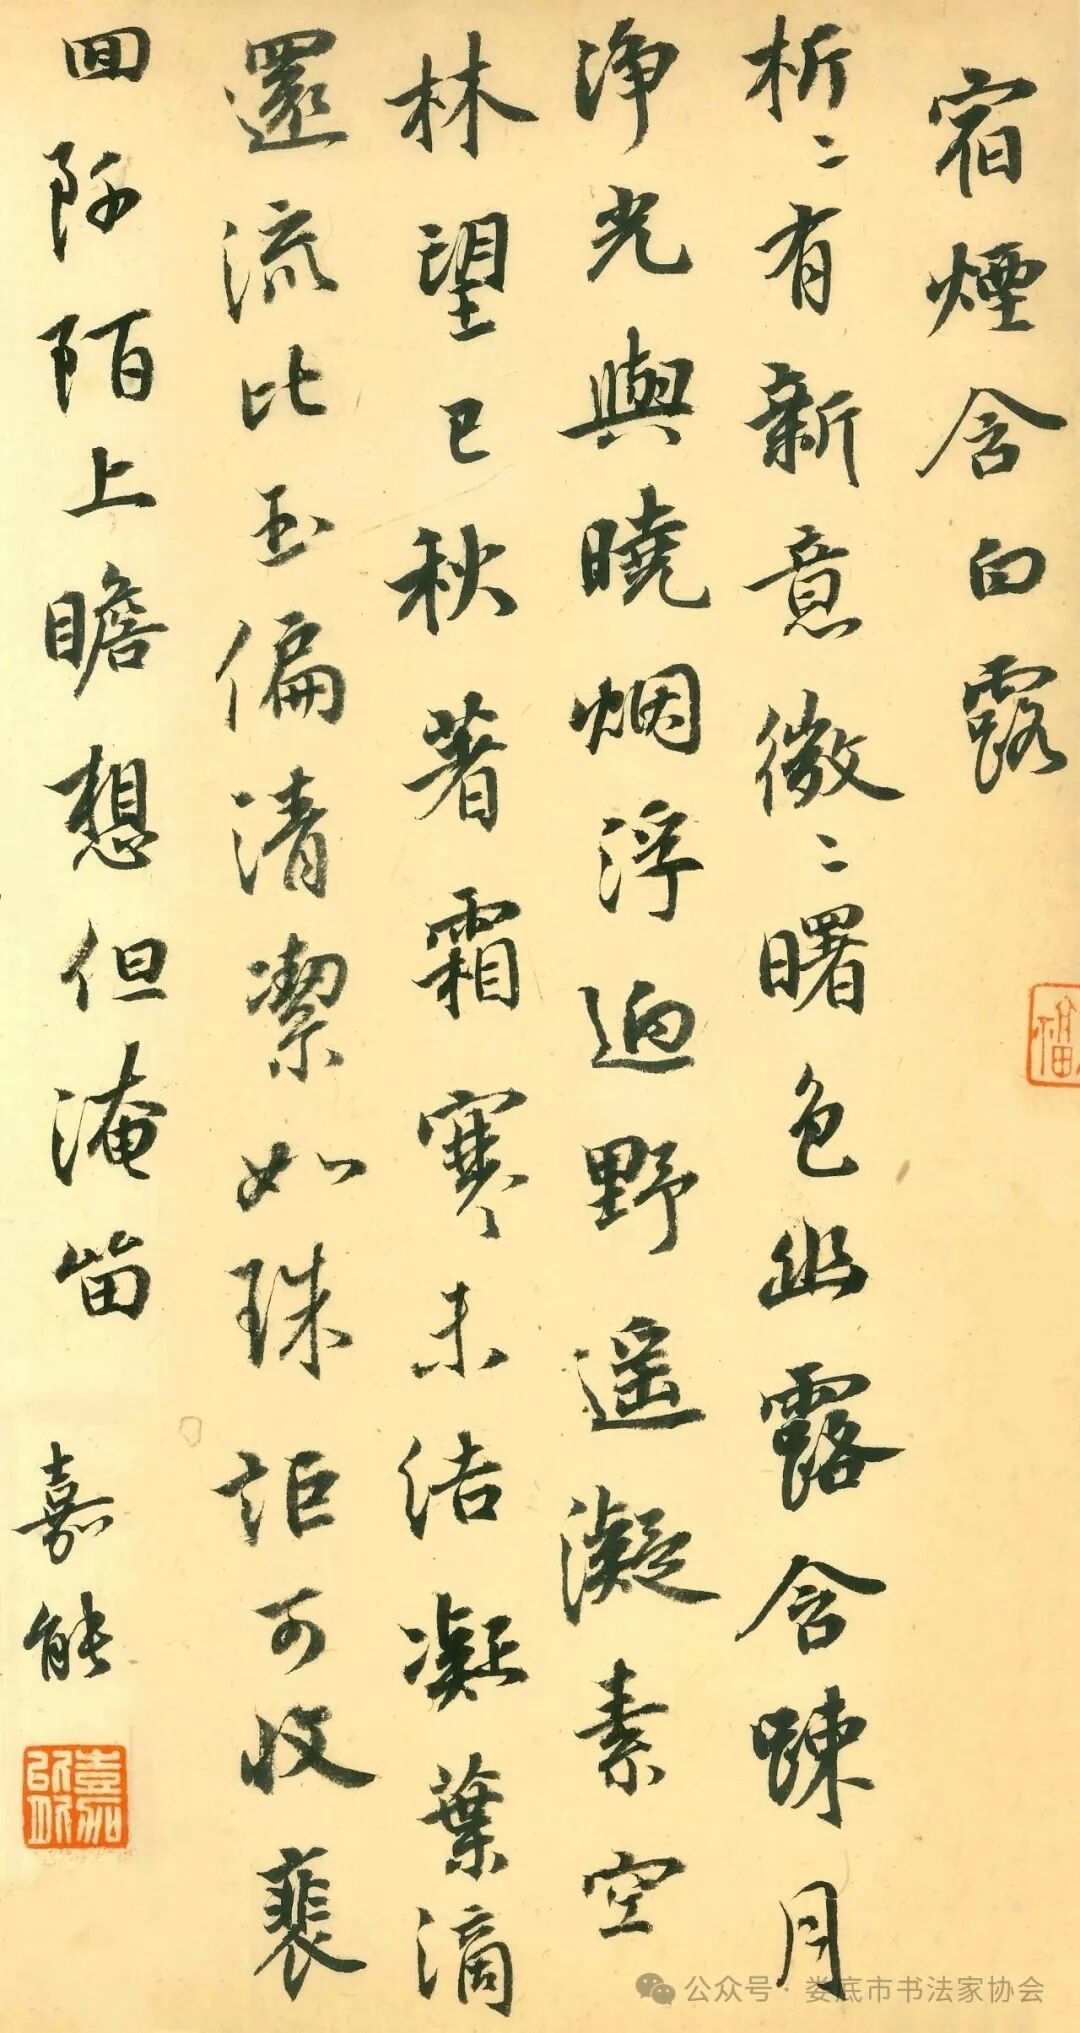 宿煙含白露
析〻有新意微〻曙色幽露含踈月
淨光與曉烟浮迥野遥凝素空
林望已秋著霜寒未结凝葉滴
還流比玉偏清潔如珠詎可收裴
回阡陌上瞻想但淹留
嘉能
福
公众号·娄底市书法家协会